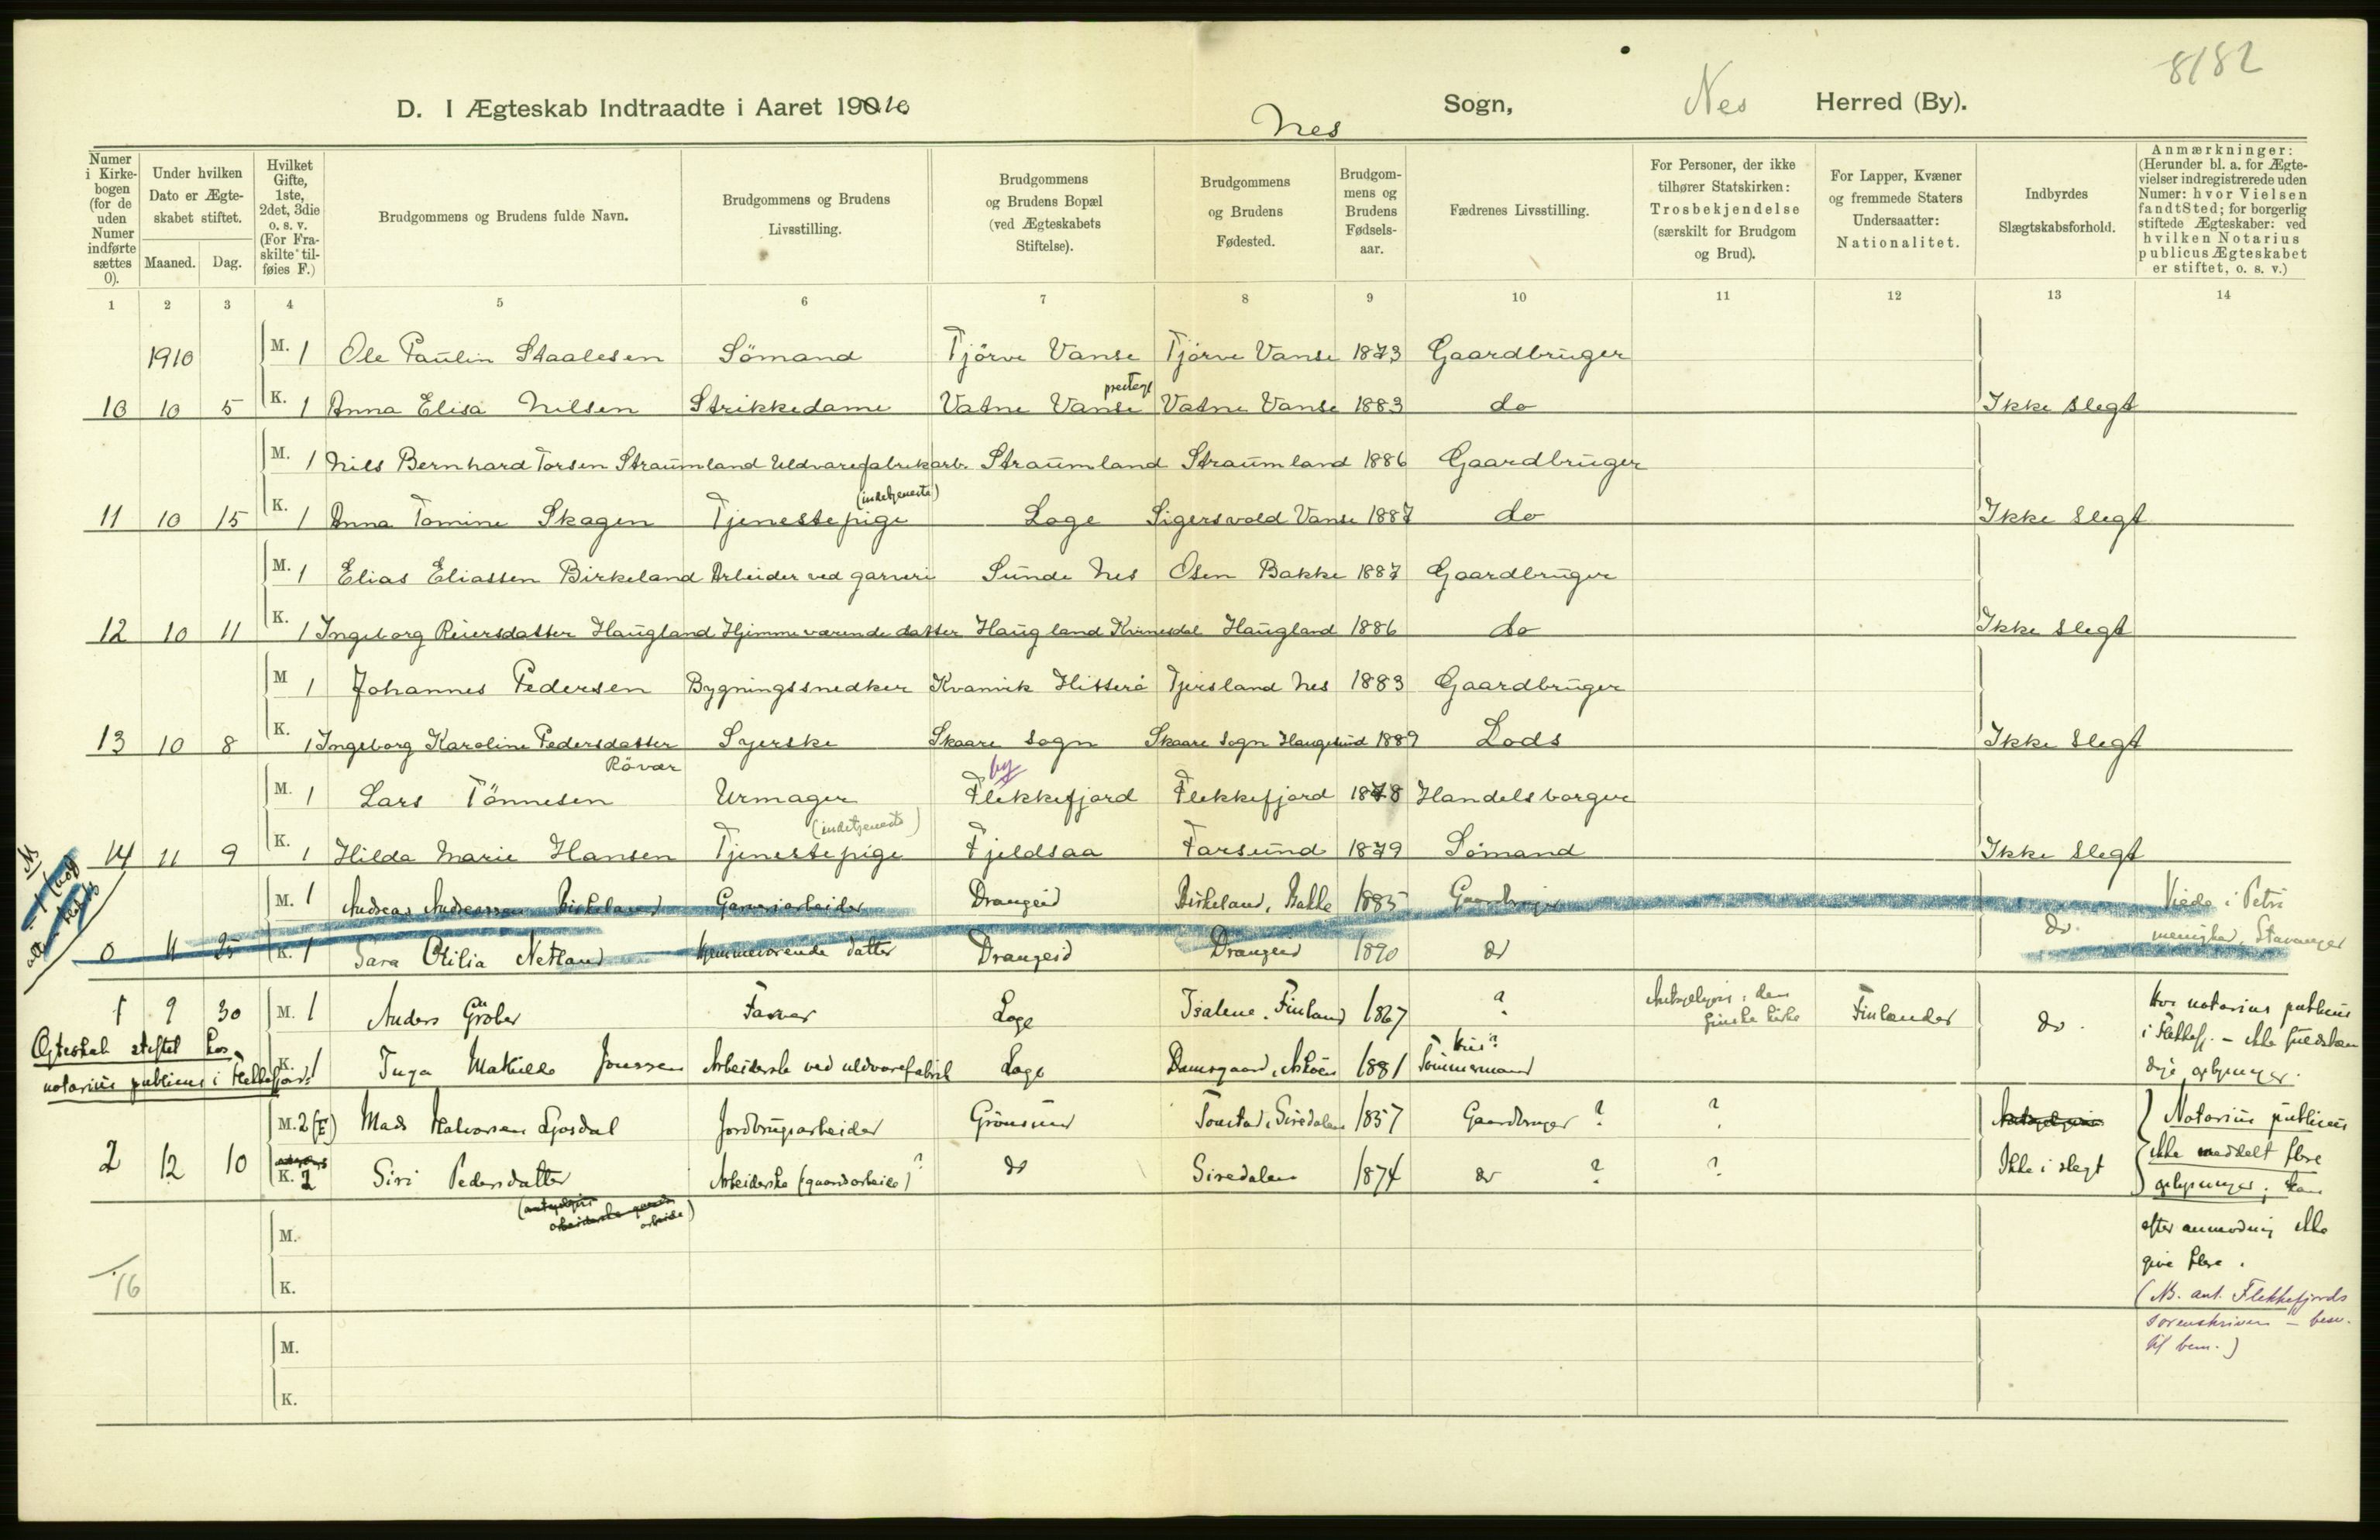 8/82
D. I Ægteskab Indtraadte i Aaret 1910 Nes Sogn, Nes Herred (By).
Numer i Kirkebogen (for de uden Numer indførte sættes 0).
Under hvilken Dato er Ægteskabet stiftet.
Maaned. Dag.
Hvilket Gifte, 1ste, 2det, 3die o. s. v. (For Fraskilte tilføies F.)
Brudgommens og Brudens fulde Navn.
Brudgommens og Brudens Livsstilling.
Brudgommens og Brudens Bopæl (ved Ægteskabets Stiftelse).
Brudgommens og Brudens Fødested.
Brudgommens og Brudens Fødselsaar.
Fædrenes Livsstilling.
For Personer, der ikke tilhører Statskirken: Trosbekjendelse (særskilt for Brudgom og Brud).
For Lapper, Kvæner og fremmede Staters Undersaatter: Nationalitet.
Indbyrdes Slægtskabsforhold.
Anmærkninger: (Herunder bl. a. for Ægtevielser indregistrerede uden Numer: hvor Vielsen fandt Sted; for borgerlig stiftede Ægteskaber: ved hvilken Notarius publicus Ægteskabet er stiftet, o. s. v.)
1 2 3 4 5 6 7 8 9 10 11 12 13 14
1910 M. 1 Ole Paulin Staalesen Sömand Tjörve Vanse Tjörve Vanse 1873 Gaardbruger
10 10 5 K. 1 Anna Elisa Nilsen Strikkedame Vatne Vanse Vatne Vanse 1883 do Ikke slegt
M. 1 Nils Bernhard Torsen Straumland Uldvarefabrikarb. Straumland Straumland 1886 Gaardbruger
11 10 15 K. 1 Anna Tomine Skagen Tjenestepige (indetjeneste) Loge Sigersvold Vanse 1887 do Ikke slegt
M. 1 Elias Eliassen Birkeland Arbeider ved garveri Sunde Nes Osen Bakke 1887 Gaardbruger
12 10 11 K. 1 Ingeborg Reiersdatter Haugland Hjemmeværende datter Haugland Kvinesdal Haugland 1886 do Ikke slegt
M 1 Johannes Pedersen Bygningssnedker Kvanvik Hitterö Tjersland Nes 1883 Gaardbruger
13 10 8 K. 1 Ingeborg Karoline Pedersdatter Syerske Skaare Sogn Skaare Sogn Haugesund 1889 Lods Ikke slegt
Rövær
M. 1 Lars Tönnesen Urmager Flekkefjord by Flekkefjord 1878 Handelsborger
14 11 9 K. 1 Hilda Marie Hansen Tjenestepige (indetjeneste) Fjeldsaa Farsund 1879 Sömand Ikke slegt
M. 1 Andreas Andreassen Birkeland Garveriarbeider Drangeid Birkeland, Bakke 1885 Gaardbruger Viede i Petri
0 11 25 K. 1 Sara Otilia Netland Hjemmeværende datter Drangeid Drangeid 1890 do do menighed, Stavanger
1 9 30 M. 1 Anders Gröber Farver Loge Finland 1867 ? den finske kirke Finlænder do. Hos notarius publicus
Ægteskab stiftet hos
i Flekkefj. – ikke fuldstæn
K. 1 Inga Mathilde Jonssen Arbeiderske ved uldvarefabrik Loge Damsgaard, Askøen 1881 Tømmermand
notarius publicus i Flekkefjord:
dige oplysninger.
M. 2 (E) Mads Halvorsen Gjosdal Jordbrugsarbeider Grönsund Tonstad, Siredalen 1857 Gaardbruger ? ? Notarius publicus
2 12 10 K. 2 Siri Pedersdatter Arbeiderske (gaardsarbeide) ? do Siredalen 1874 do ? ? Ikke i slegt ikke meddelt flere
oplysninger; kan
M. efter anmodning ikke
give flere.
16 K.
(NB. ant. Flekkefjords
sorenskriver – besv.
til bem.)
M.
K.